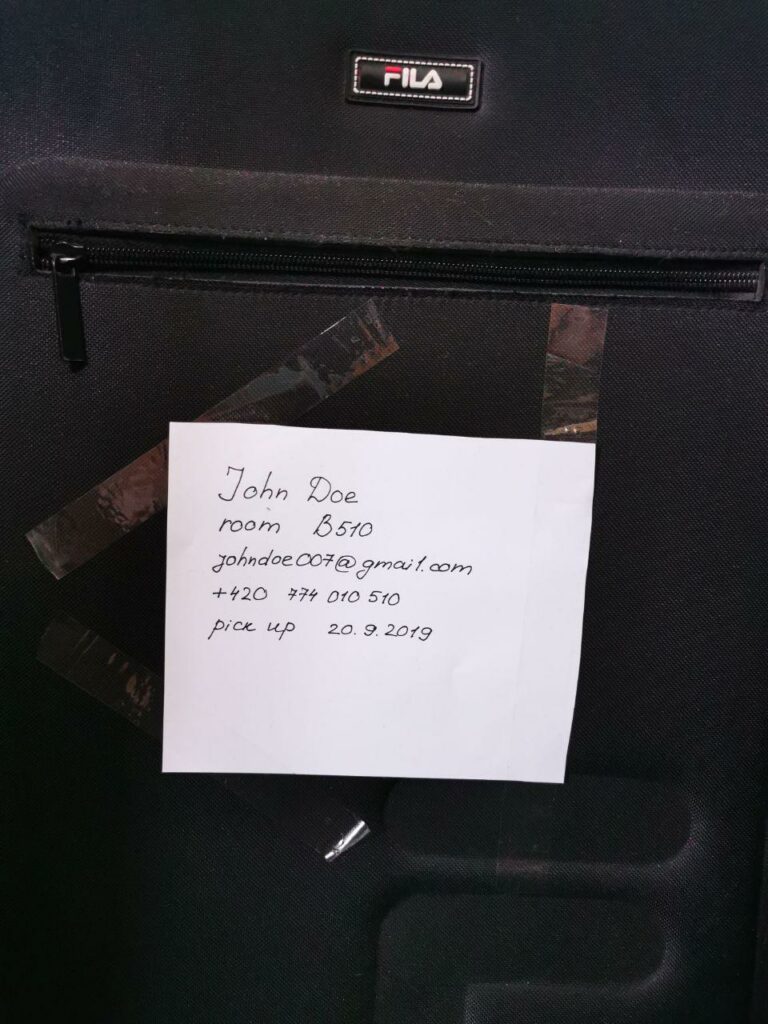 FILA
John Doe
room B510
johndoe007@gmail.com
+420 774 010 510
pick up 20.9.2019